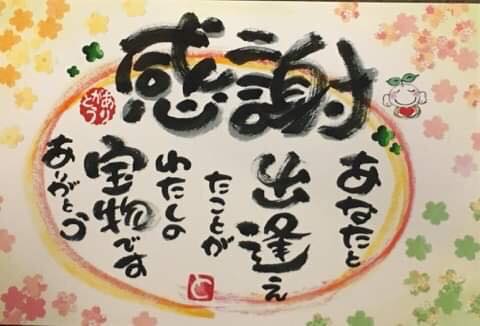 感謝
ありがとう
あなたと
出逢え
たことが
わたしの
宝物です
ありがとう